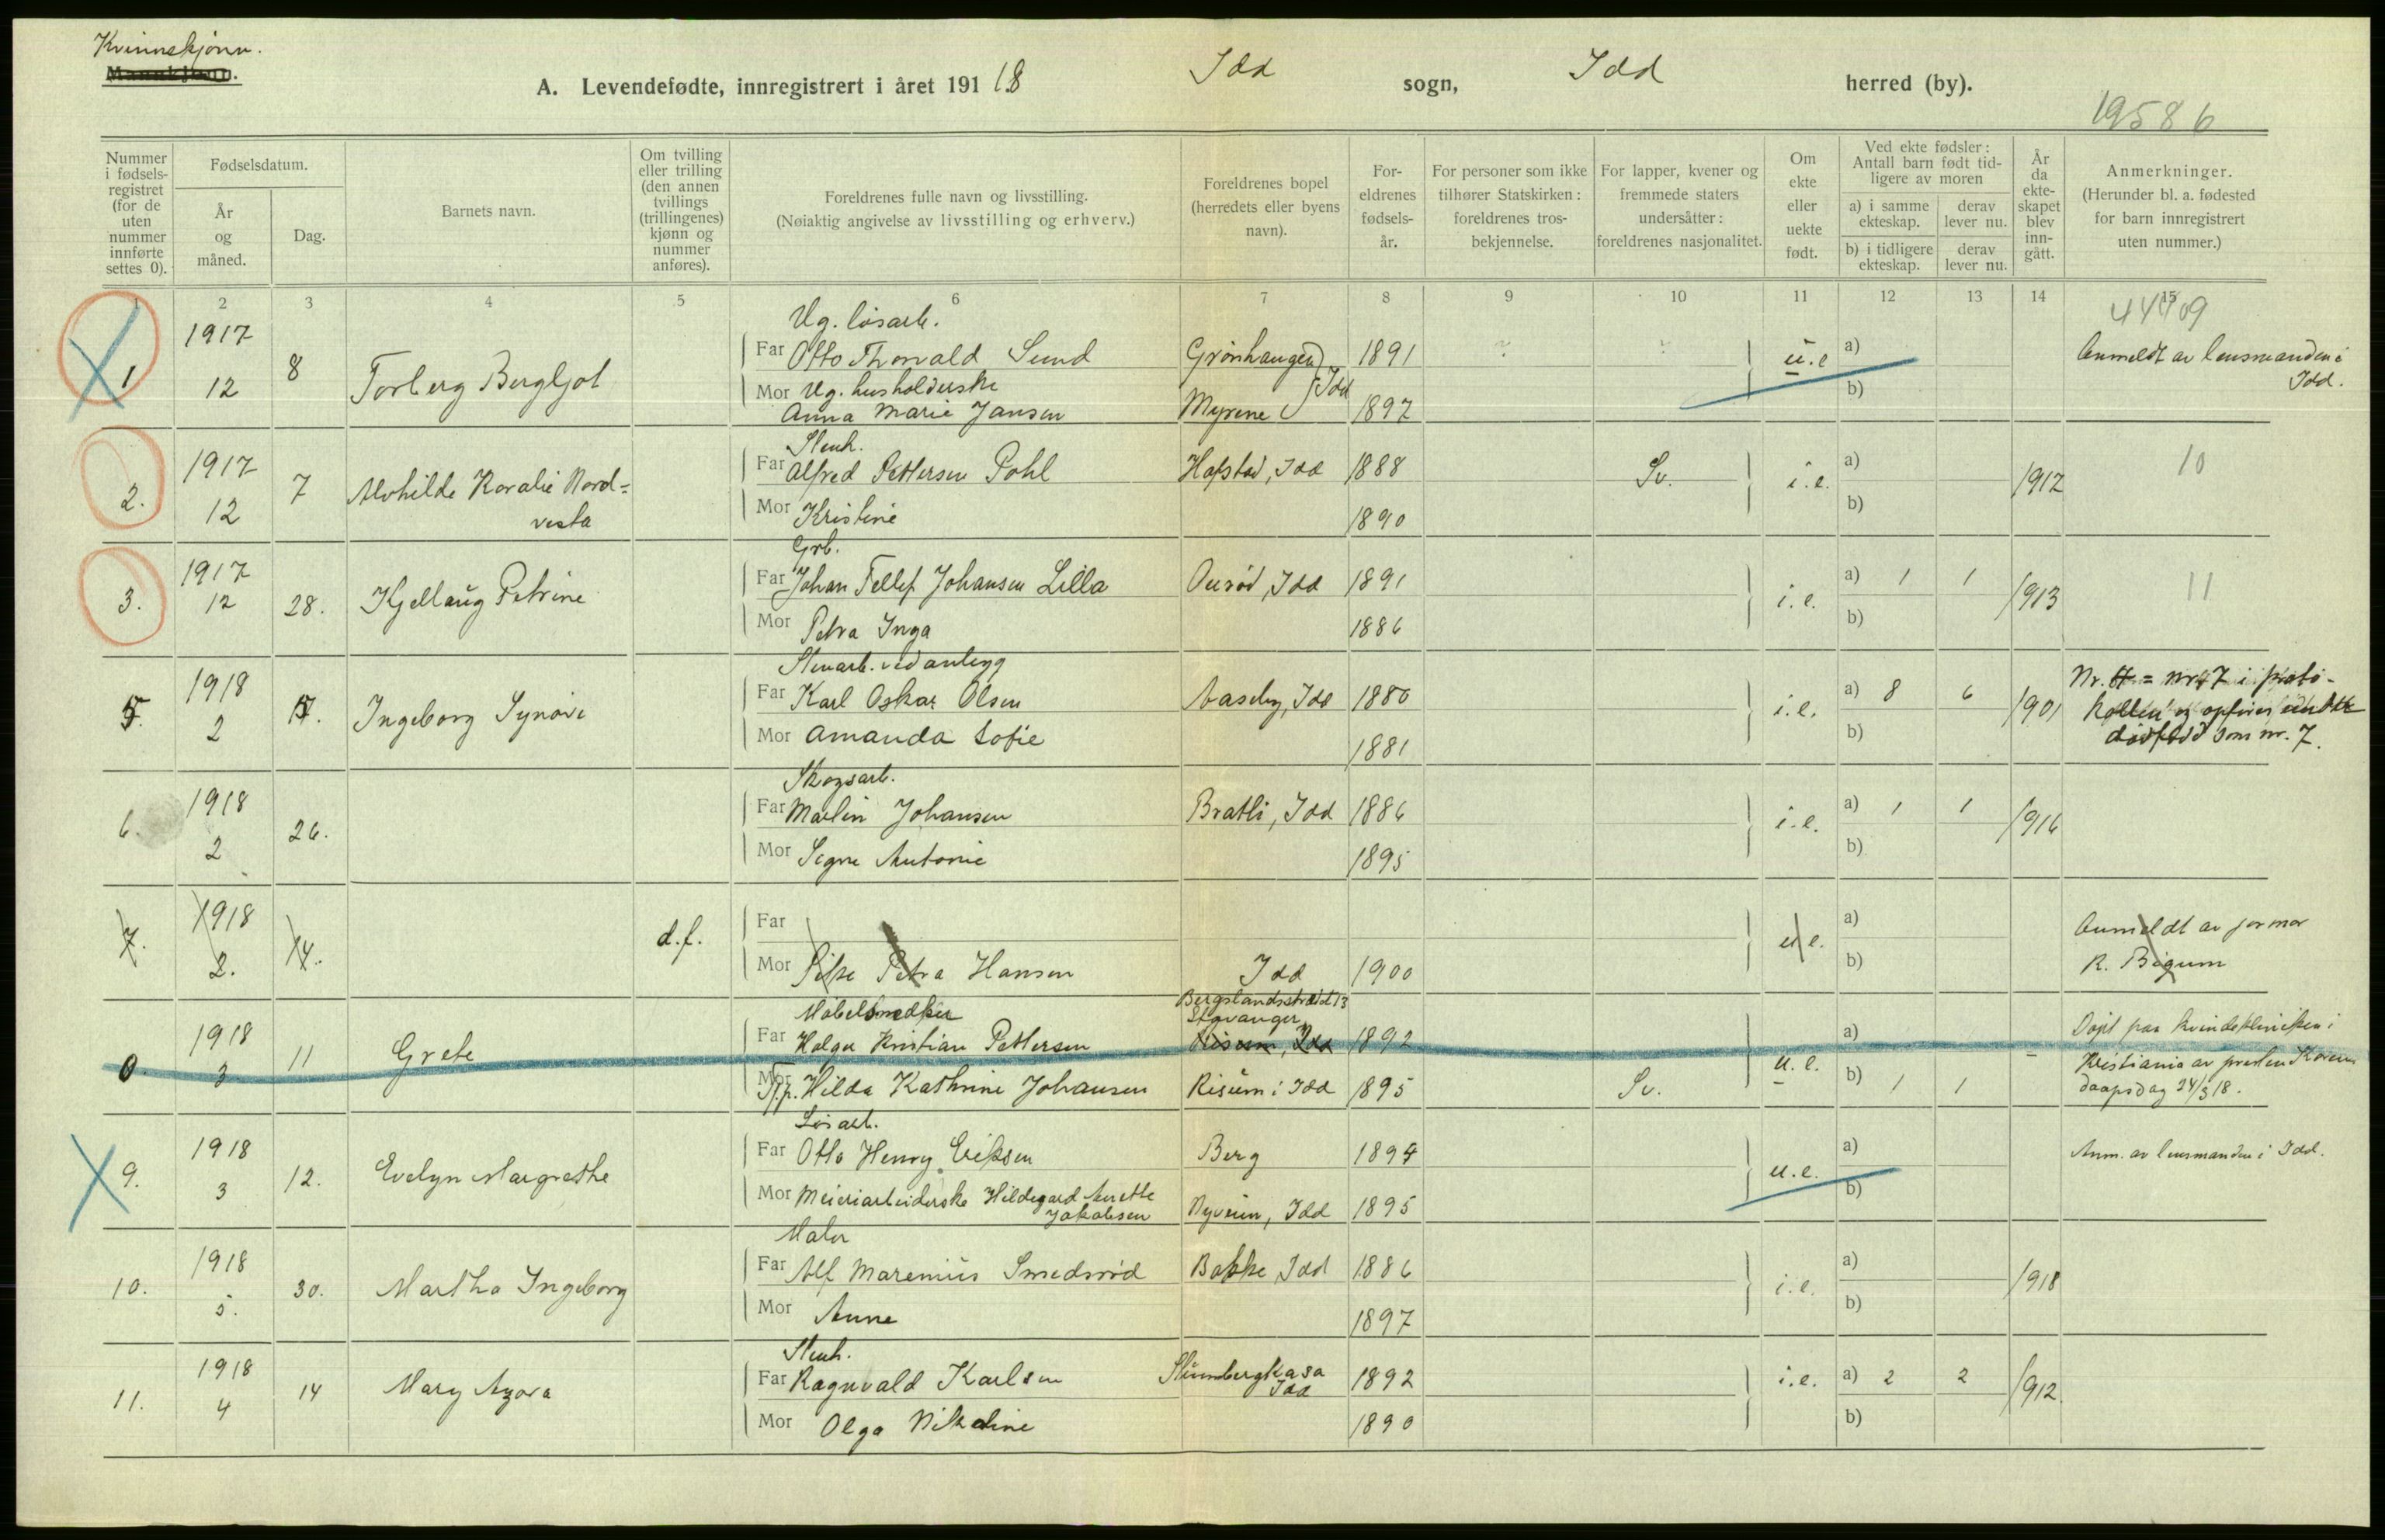 Kvinnekjønn.
Mannkjønn.
A. Levendefødte, innregistrert i året 1918
Idd sogn, Idd herred (by).
19586
Nummer i fødselsregistret (for de uten nummer innførte settes 0).
Fødselsdatum.
År og måned.
Dag.
Barnets navn.
Om tvilling eller trilling (den annen tvillings (trillingenes) kjønn og nummer anføres).
Foreldrenes fulle navn og livsstilling.
(Nøiaktig angivelse av livsstilling og erhverv.)
Foreldrenes bopel (herredets eller byens navn).
Foreldrenes fødselsår.
For personer som ikke tilhører Statskirken: foreldrenes trosbekjennelse.
For lapper, kvener og fremmede staters undersåtter: foreldrenes nasjonalitet.
Om ekte eller uekte født.
Ved ekte fødsler: Antall barn født tidligere av moren
a) i samme ekteskap.
derav lever nu.
b) i tidligere ekteskap.
derav lever nu.
År da ekteskapet blev inngått.
Anmerkninger.
(Herunder bl. a. fødested for barn innregistrert uten nummer.)
1 2 3 4 5 6 7 8 9 10 11 12 13 14 15
44409
Ug. løsarb.
1 1917 12 8 Torberg Bergljot
Far Otto Thorvald Sund Grønhaugen 1891 u.e a)
Anmeldt av lensmanden i Idd.
Mor Ug. husholderske Idd b)
Anna Marie Jansen Myrene 1897
Stenh.
2. 1917 12 7 Alvhilde Koralie Nordvesta
Far Alfred Pettersen Pohl Hafstad, Idd 1888 Sv. i.e. a) 1912 10
Mor Kristine 1890 b)
Grb.
3. 1917 12 28. Kjellaug Petrine
Far Johan Tellef Johansen Lilla Ourød, Idd 1891 i.e. a) 1 1 1913 11
Mor Petra Inga 1886 b)
Stenarb. ved anlegg
5. 1918 2 17. Ingeborg Synøve
Far Karl Oskar Olsen Aaseby, Idd 1880 i.e. a) 8 6 1901
Mor Amanda Sofie 1881 b)
= nr 7 i protokollen og opføres under
dødfød som nr. 7.
Skogsarb.
6. 1918 2 26.
Far Martin Johansen Bratli, Idd 1886 i.e. a) 1 1 1916
Mor Signe Antonie 1895 b)
7. 1918 2. 14. d.f.
Far u e. a)
Mor Pike Petra Hansen Idd 1900 b)
Anmeldt av jormor
R. Bigum
Møbelsnedker Bergslandsstræde 13
Stavanger
0. 1918 3 11 Grete
Far Holger Kristian Pettersen Risum, Idd 1892 u.e. a)
Mor Tj.p. Hilda Kathrine Johansen Risum i Idd 1895 Sv. b) 1 1
Døpt paa kvindeklinikken i
Kristiania av presten Koren
daapsdag 24/3 18.
Løsarb.
9. 1918 3 12. Evelyn Margrethe
Far Otto Henry Eriksen Berg 1894 u.e. a)
Anm. av lensmanden i Idd.
Mor Meieriarbeiderske Hildegard Anette Jakobsen Nyveien, Idd 1895 b)
Maler
10. 1918 5. 30. Martha Ingeborg
Far Alf Marenius Smedsrød Bakke, Idd 1886 i.e. a) 1918
Mor Anne 1897 b)
Stenh.
11. 1918 4 14 Mary Azora
Far Ragnvald Karlsen Idd 1892 i.e. a) 2 2 1912
Mor Olga Nikoline 1890 b)